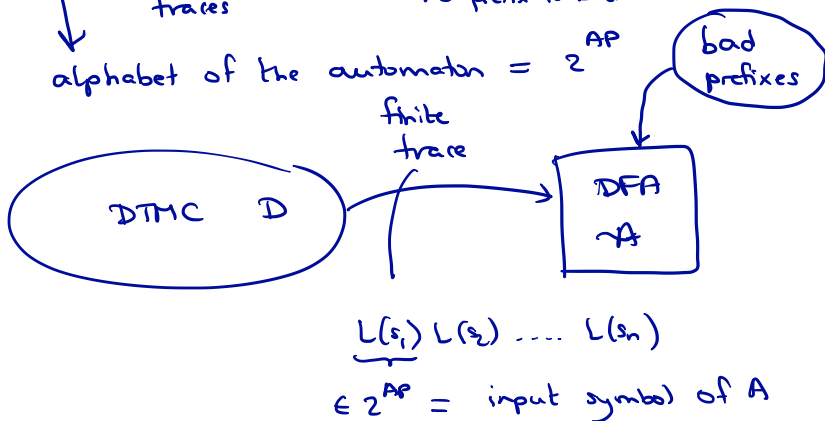 traces
alphabet of the automaton = 2^AP
bad
prefixes
finite
trace
DTMC D
DFA
A
L(s₁) L(s₂) .... L(sₙ)
∈ 2^AP = input symbol of A